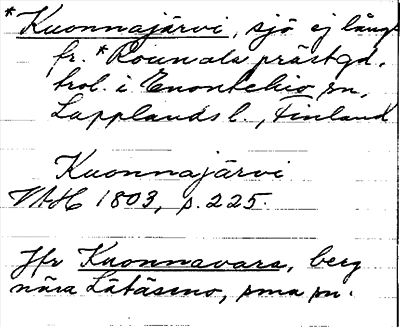 *Kuonnajärvi, sjö ej långt
fr. *Rounals prästgd,
trol. i Enontekio sn,
Lapplands l., Finland
Kuonnajärvi
VAH 1803, p. 225.
Jfr Kuonnavara, berg
nära Lätäseno, sma sn.